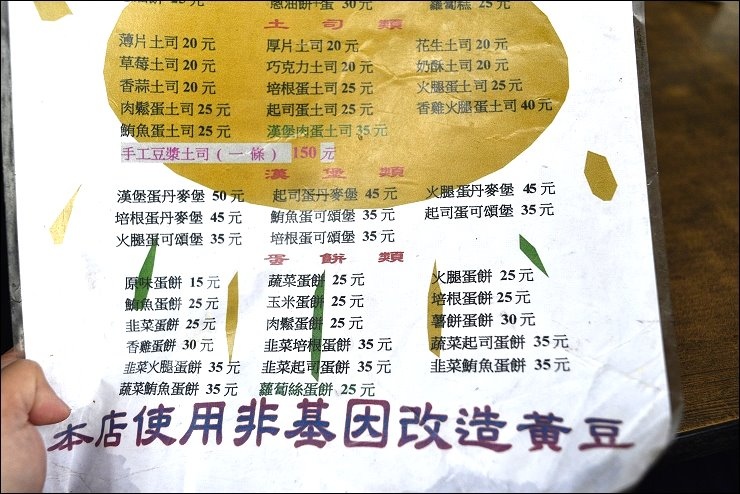 蔥油餅+蛋 30 元 蘿蔔糕 25 元
土司類
薄片土司 20 元 厚片土司 20 元 花生土司 20 元
草莓土司 20 元 巧克力土司 20 元 奶酥土司 20 元
香蒜土司 20 元 培根蛋土司 25 元 火腿蛋土司 25 元
肉鬆蛋土司 25 元 起司蛋土司 25 元 香雞火腿蛋土司 40 元
鮪魚蛋土司 25 元 漢堡肉蛋土司 35 元
手工豆漿土司(一條) 150 元
漢堡類
漢堡蛋丹麥堡 50 元 起司蛋丹麥堡 45 元 火腿蛋丹麥堡 45 元
培根蛋丹麥堡 45 元 鮪魚蛋可頌堡 35 元 起司蛋可頌堡 35 元
火腿蛋可頌堡 35 元 培根蛋可頌堡 35 元
蛋餅類
原味蛋餅 15 元 蔬菜蛋餅 25 元 火腿蛋餅 25 元
鮪魚蛋餅 25 元 玉米蛋餅 25 元 培根蛋餅 25 元
韭菜蛋餅 25 元 肉鬆蛋餅 25 元 薯餅蛋餅 30 元
香雞蛋餅 30 元 韭菜培根蛋餅 35 元 蔬菜起司蛋餅 35 元
韭菜火腿蛋餅 35 元 韭菜起司蛋餅 35 元 韭菜鮪魚蛋餅 35 元
蔬菜鮪魚蛋餅 35 元 蘿蔔絲蛋餅 25 元
本店使用非基因改造黃豆